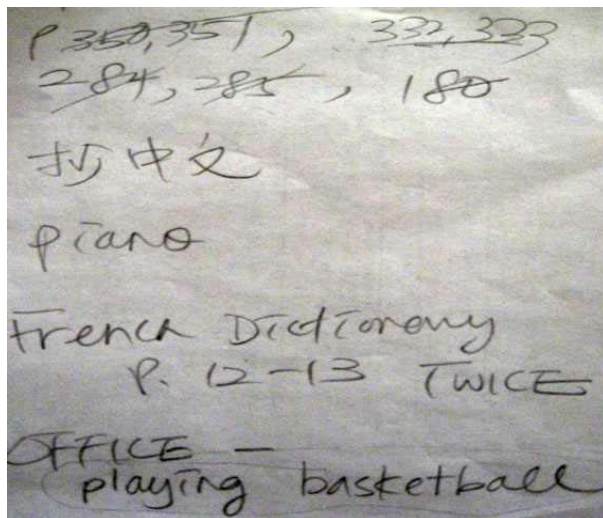 P 350,351, 332,333
284, 285, 180
抄中文
piano
French Dictionary
P. 12-13 TWICE
OFFICE -
playing basketball